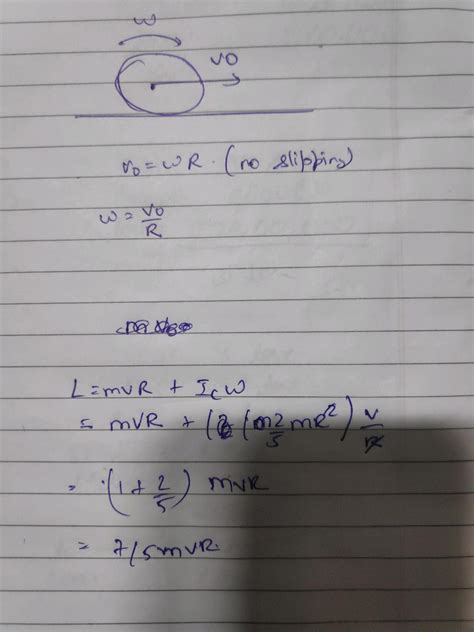 ω
v0
v₀ = ωR. (no slipping)
ω = v0/R
L = mvR + I_c ω
= mvR + (2/5 mR²) v/R
= (1 + 2/5) mvR
= 7/5 mvR.